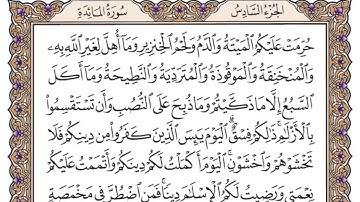 سُورَةُ المَائِدَةِ الجُزْءُ السَّادِسُ
حُرِّمَتْ عَلَيْكُمُ الْمَيْتَةُ وَالدَّمُ وَلَحْمُ الْخِنزِيرِ وَمَا أُهِلَّ لِغَيْرِ اللَّهِ بِهِۦ
وَالْمُنْخَنِقَةُ وَالْمَوْقُوذَةُ وَالْمُتَرَدِّيَةُ وَالنَّطِيحَةُ وَمَا أَكَلَ
السَّبُعُ إِلَّا مَا ذَكَّيْتُمْ وَمَا ذُبِحَ عَلَى النُّصُبِ وَأَن تَسْتَقْسِمُوا
بِالْأَزْلَٰمِ ذَٰلِكُمْ فِسْقٌ الْيَوْمَ يَئِسَ الَّذِينَ كَفَرُوا مِن دِينِكُمْ فَلَا
تَخْشَوْهُمْ وَاخْشَوْنِ الْيَوْمَ أَكْمَلْتُ لَكُمْ دِينَكُمْ وَأَتْمَمْتُ عَلَيْكُمْ
نِعْمَتِي وَرَضِيتُ لَكُمُ الْإِسْلَٰمَ دِينًا فَمَنِ اضْطُرَّ فِي مَخْمَصَةٍ